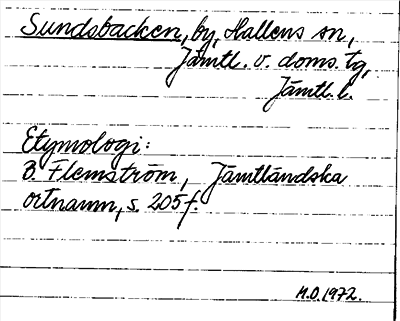 Sundsbacken, by, Hallens sn,
Jämtl. v. doms. tg,
Jämtl. l.
Etymologi:
B. Flemström, Jämtländska
ortnamn, s. 205 f.
M.O. 1972.